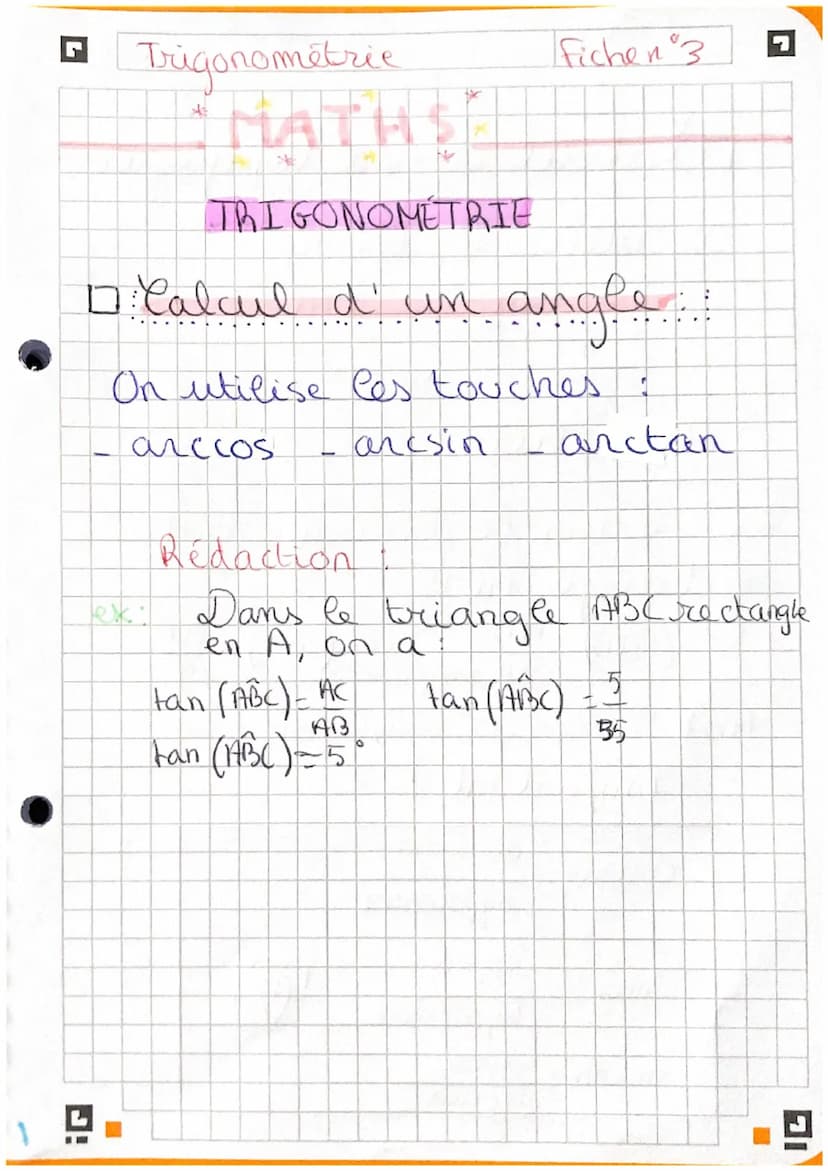 Trigonométrie
Fiche n°3
MATHS
TRIGONOMÉTRIE
Calcul d'un angle :
On utilise les touches :
- arccos - arcsin - arctan
Rédaction :
ex: Dans le triangle ABC rectangle
en A, on a :
tan (AB̂C) = AC/AB tan (AB̂C) = 5/55
tan (AB̂C) = 5°
1